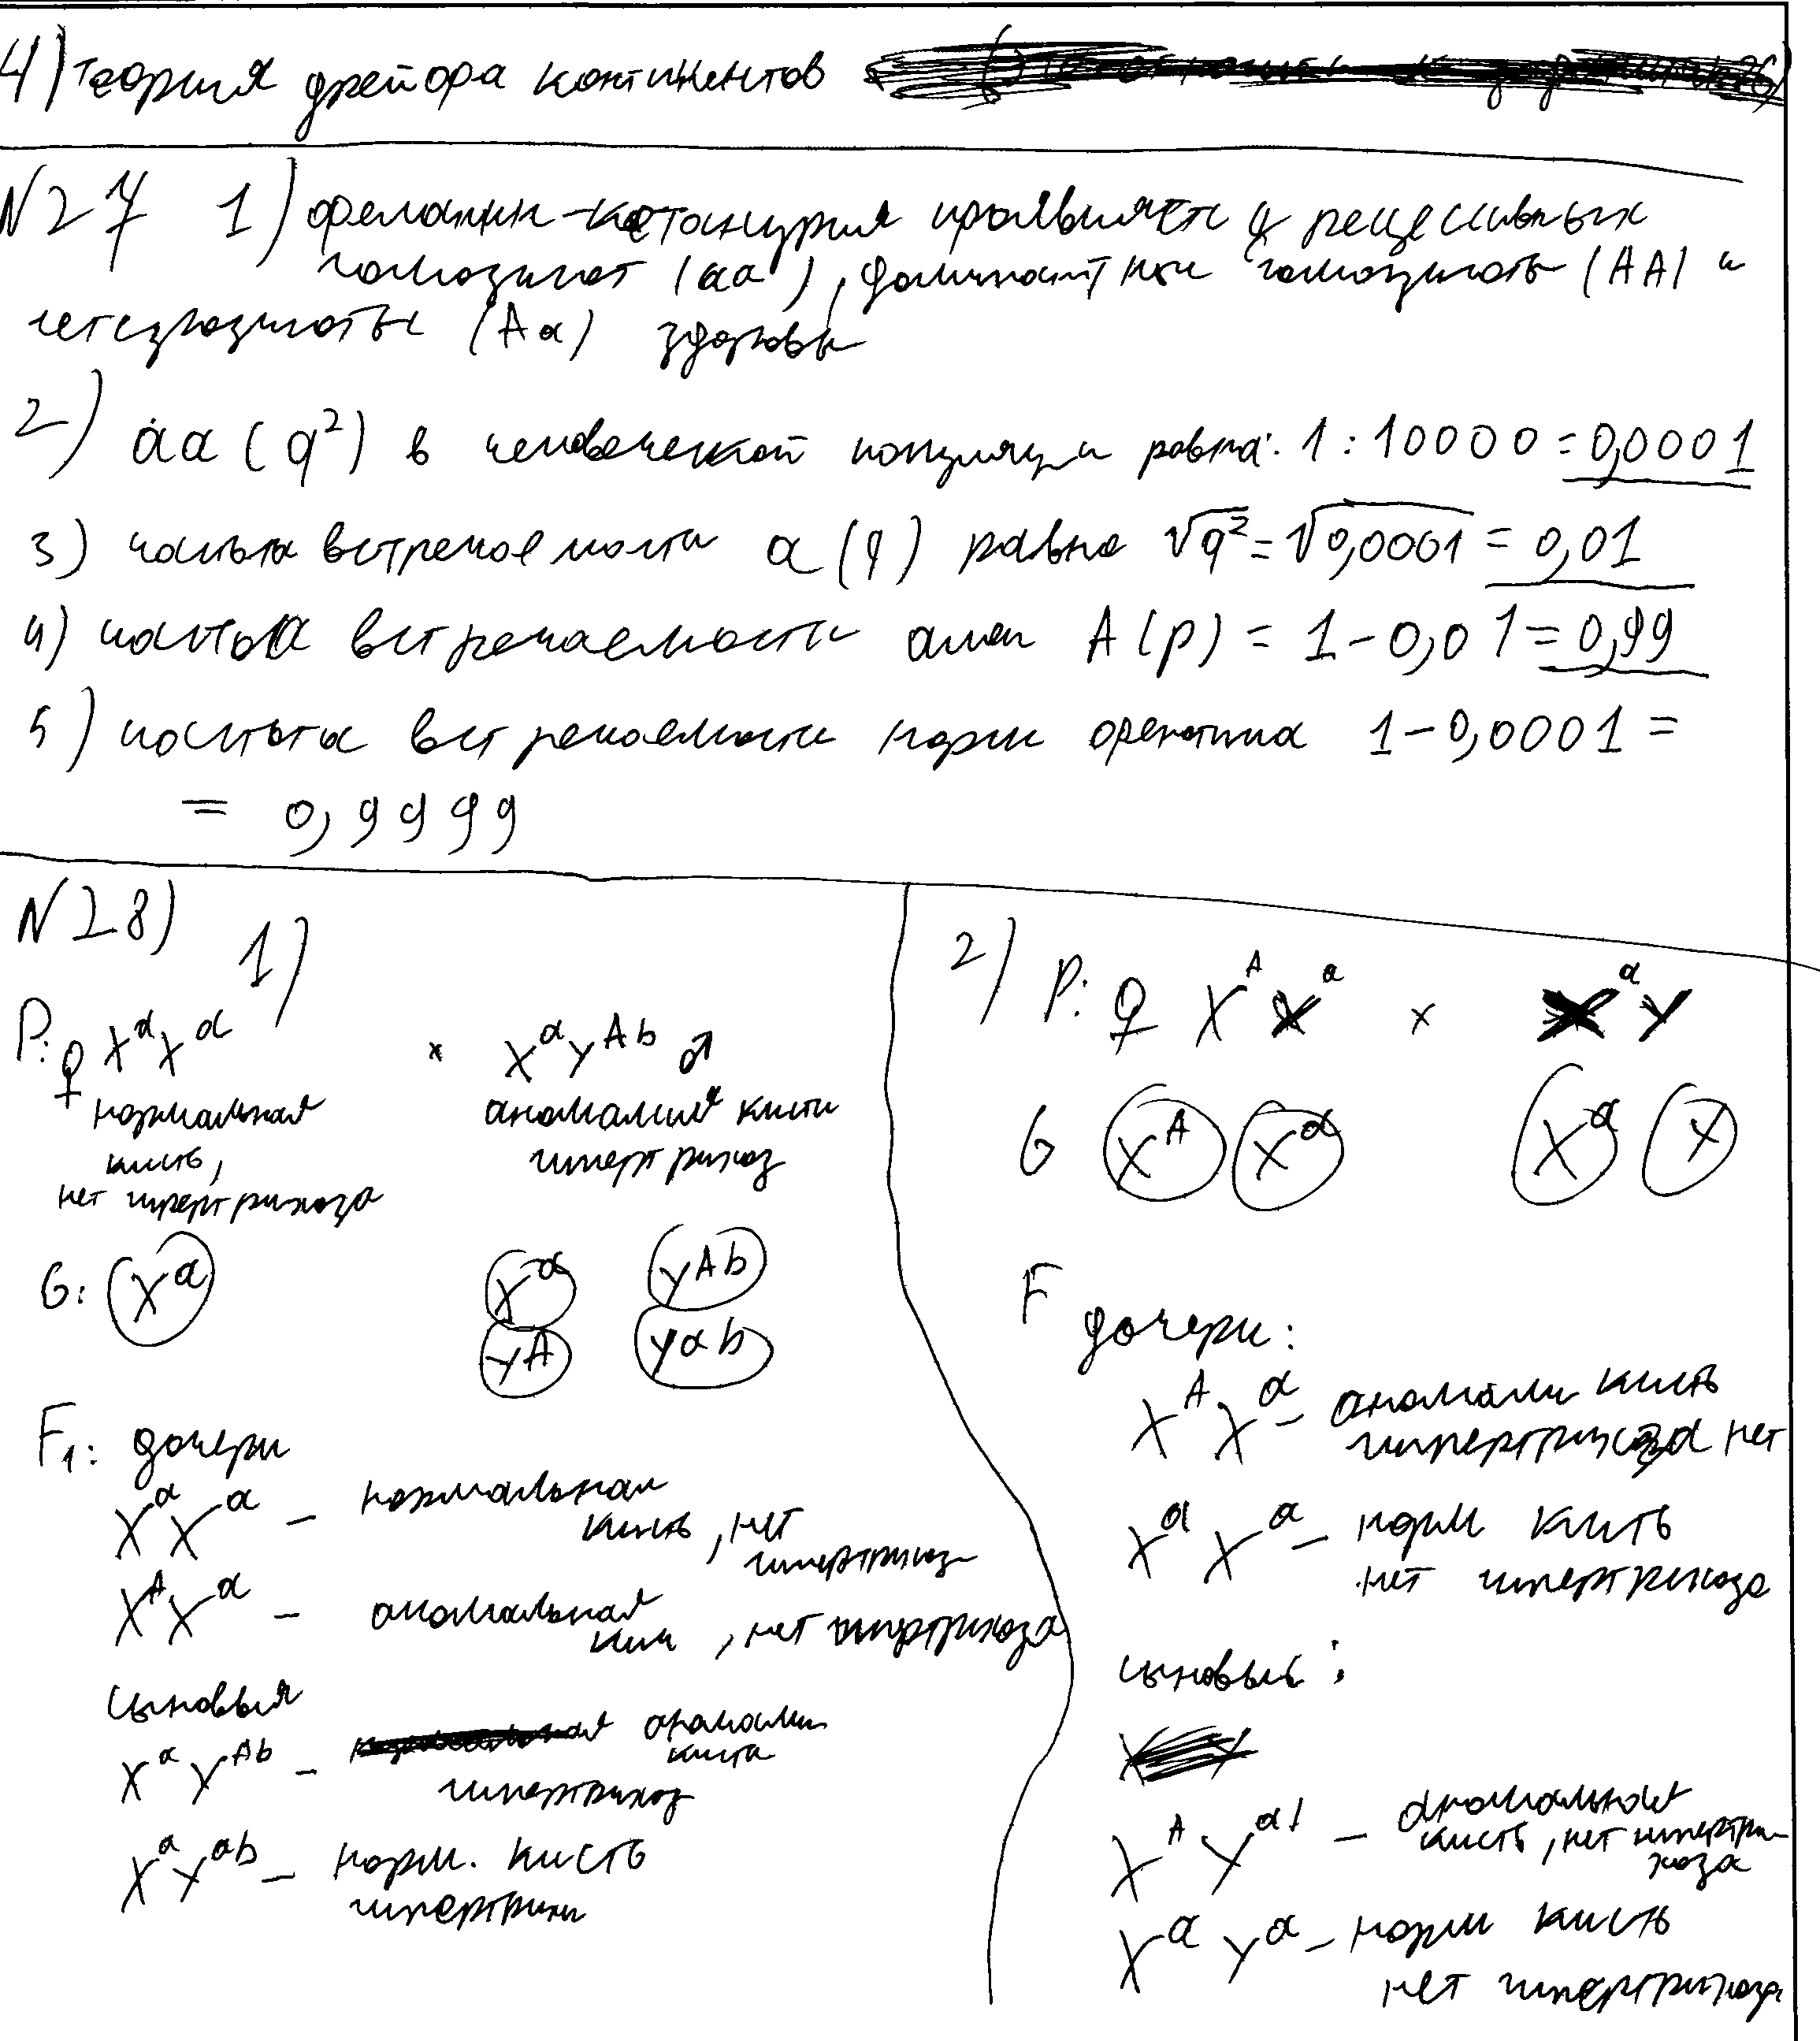 4) Теория дрейфа континентов
N27 1) фелалнин-кетанурия проявляется у рецессивных
гомозигот (аа), доминантные гомозиготы (АА) и
гетерозиготы (Аа) здоровы
2) аа (q²) в человеческой популяции равна: 1 : 10000 = 0,0001
3) частота встречаемости а (q) равна √q² = √0,0001 = 0,01
4) частота встречаемости аллел А (p) = 1 - 0,01 = 0,99
5) частота встречаемости норм фенотипа 1 - 0,0001 =
= 0,9999
N28)
1)
P: ♀ XᵃXᵃ × XᵃYᴬᵇ ♂
нормальная кисть, нет гипертрихоза
аномалия кисти гипертрихоз
G: Xᵃ Xᵃ Yᴬᵇ
Yᴬ Yᵃᵇ
F₁: дочери
XᵃXᵃ – нормальная
кисть, нет
гипертрихоз
XᴬXᵃ – аномальная
кисть, нет гипертрихоза
сыновья
XᵃYᴬᵇ – аномалия
кисти
гипертрихоз
XᵃYᵃᵇ – норм. кисть
гипертрихоз
2) P: ♀ XᴬXᵃ × XᵃY
G Xᴬ Xᵃ Xᵃ Y
F дочери:
XᴬXᵃ – аномалия кисть
гипертрихоза нет
XᵃXᵃ – норм кисть
нет гипертрихоза
сыновья:
XᴬYᵃ – аномальная
кисть, нет гипертри-
хоза
XᵃYᵃ – норм кисть
нет гипертрихоза